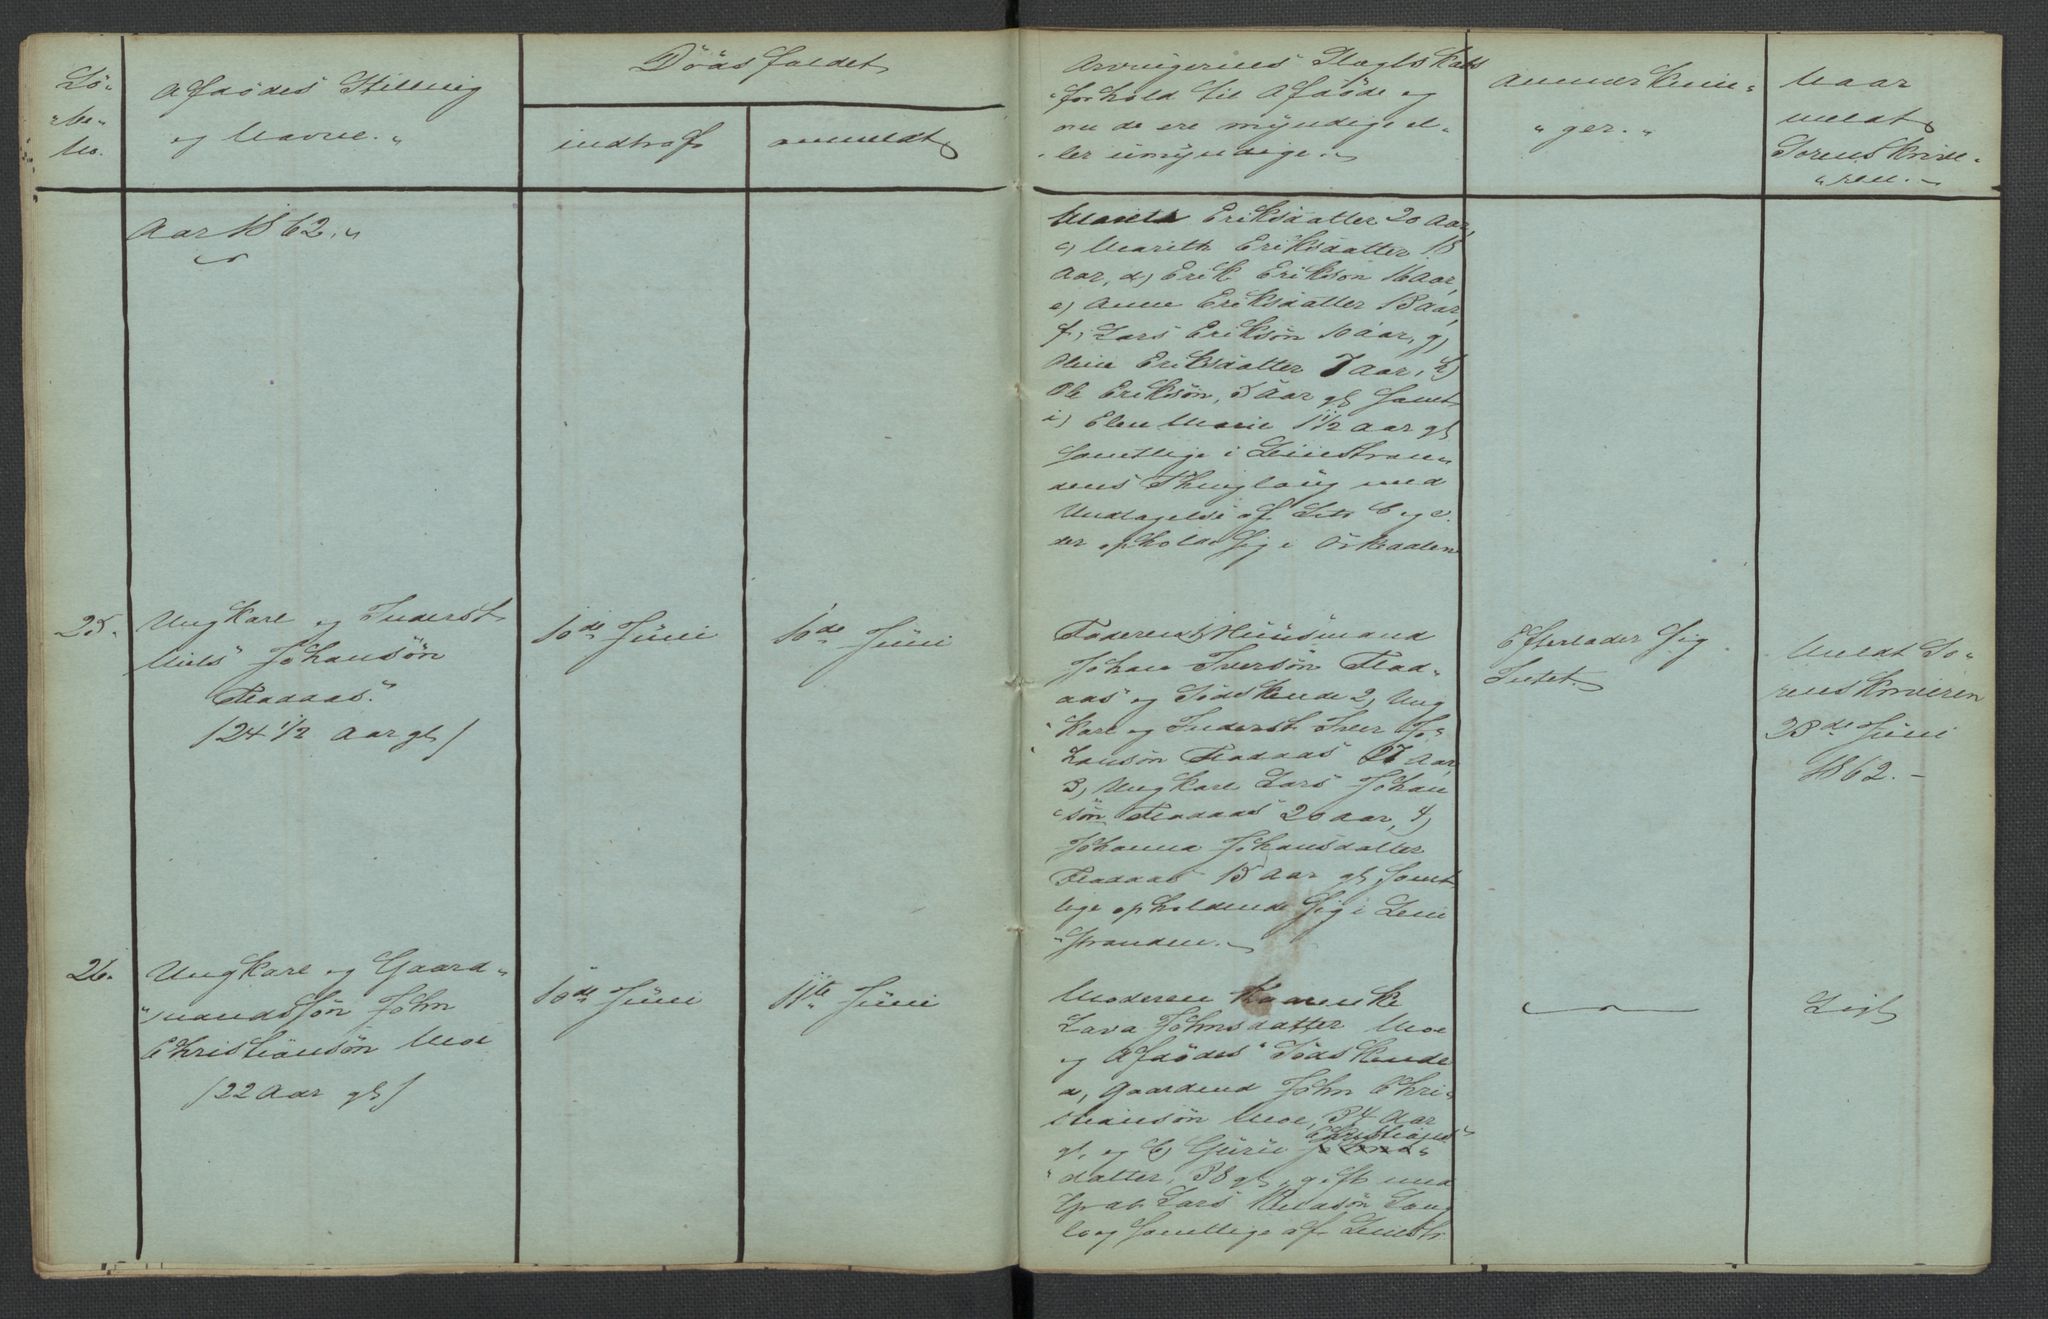 Lö-
"be-
No.
Afdödes Stilling
og Navne. "
Dödsfaldet
indtraf
anmeldt
Arvingernes Slægtskabs
"forhold til Afdöde og
om de ere myndige el-
"ler umyndige.
Anmærknin-
"ger. "
Naar
meldt
Sorenskrive-
"ren.
Aar 1862. "
Marith Eriksdatter 20 Aar,
c) Marith Eriksdatter 18
Aar, d) Erik Erikson 16 Aar,
e) Anne Eriksdatter 13 Aar,
f, Lars Eriksön 10 Aar, g)
Eriksdatter 7 Aar, h)
Ole Eriksön, 5 Aar gl samt
i) Elen Marie 1 1/2 Aar gl
samtlige i Leinstran-
dens Thinglaug med
Undtagelse af Litr
der opholde sig i Orkedalen
25.
Ungkarl og Inderst
Niels Johansön
Fladaas.
/24 1/2 Aar gl/
10de Juni
10de Juni
Faderen 1) Huusmand
Johan Iversön Flad-
aas og Södskende 2, Ung
"karl og Inderst Iver Jo-
hansön Fladaas 27 Aar,
3, Ungkarl Lars Johan
"sön Fladaas 20 Aar, 4)
Johanna Johansdatter
Fladaas 15 Aar gl samt
lige opholdende sig i Lein
"stranden.
Efterlader sig
Intet.
Meldt So-
renskriveren
23de Juni
1862. -
26.
Ungkarl og Gaard-
"mandssön John
Christiansön Moe
/22 Aar gl/
10de Juni
11te Juni
Moderen Kaarenke
Lava Johnsdatter Moe
og Afdödes Södskende
a, Gaardmd John Chri-
stiansön Moe, 34 Aar
gl, og b) Guru Christians"
datter, 38 gl, gift med
Lars
samtlige af Leinstr